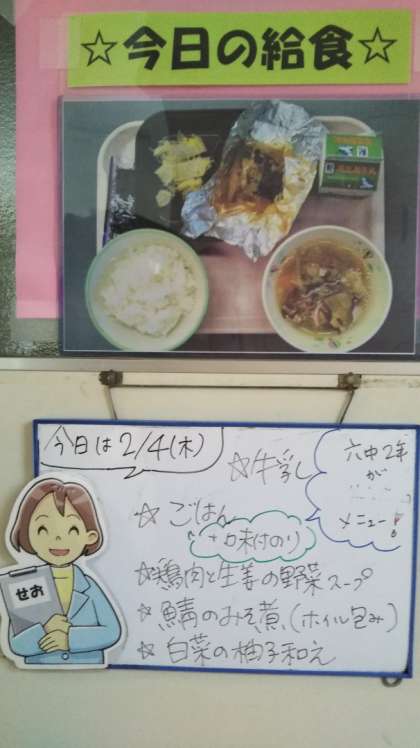 ☆今日の給食☆
今日は2/4(木)
☆牛乳
☆ ごはん
+カ味付のり
六中2年
が
メニュー!
☆鶏肉と生姜の野菜スープ
☆鯖のみそ煮(ホイル包み)
☆白菜の柚子和え
せお